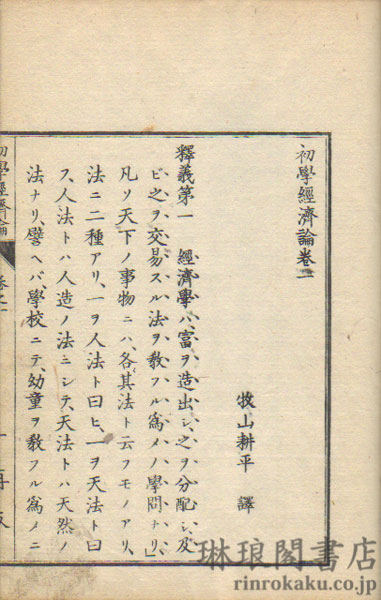 初學經濟論卷一
牧山耕平 譯
釋義第一 經濟學ハ、富ヲ造出シ、之ヲ分配シ、及
ビ之ヲ交易スル法ヲ敎フル爲メノ學問ナリ、
凡ソ天下ノ事物ニハ、各其法ト云フモノアリ、
法ニ二種アリ、一ヲ人法ト曰ヒ、一ヲ天法ト曰
フ、人法トハ人造ノ法ニシテ、天法トハ天然ノ
法ナリ、譬ヘバ、學校ニテ、幼童ヲ敎フル爲メニ
初學經濟論
琳琅閣書店
rinrokaku.co.jp